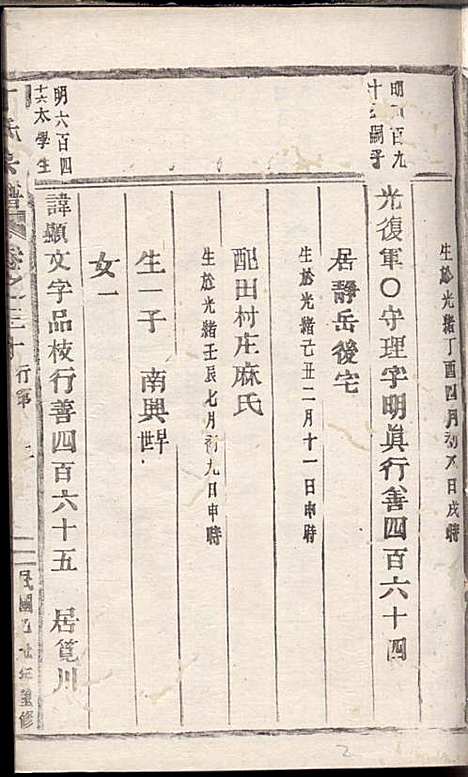 生於光緒丁酉四月初八日戌時
明六百九
十三嗣子
光復軍〇守理字明眞行善四百六十四
居靜岳後宅
生於光緒己丑二月十一日申時
配田村庄麻氏
生於光緒壬辰七月初九日申時
生一子 南興早世
女一
明六百四
十六太學生
諱顯文字品枝行善四百六十五 居筧川
氏宗譜 卷之三十 行第
民國 年重修
2